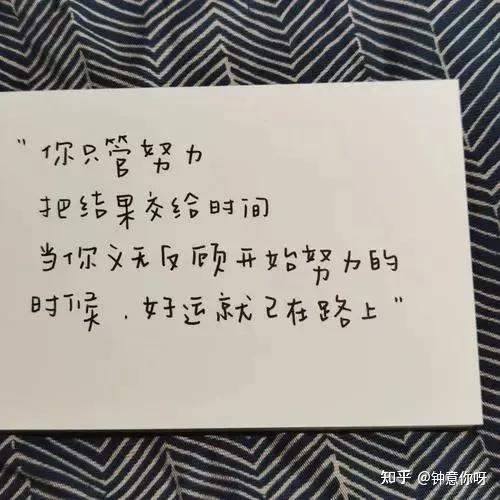 "你只管努力
把结果交给时间
当你义无反顾开始努力的
时候，好运就已在路上"
知乎 @钟意你呀